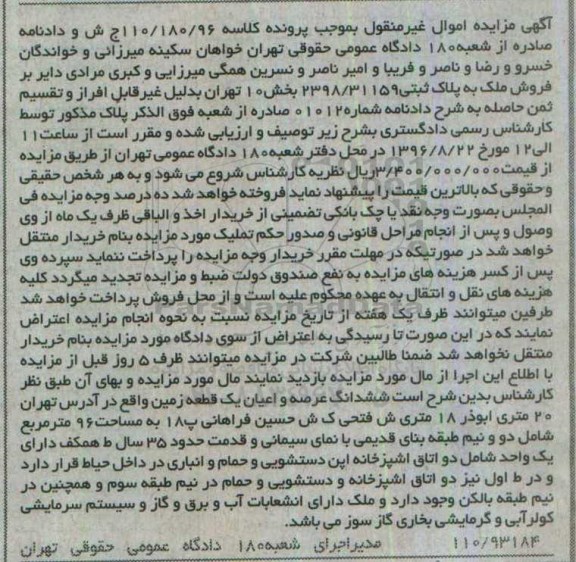 آگهی مزایده اموال غیرمنقول بموجب پرونده کلاسه ۱۱۰/۱۸۰/۹۶ج ش و دادنامه
صادره از شعبه۱۸۰ دادگاه عمومی حقوقی تهران خواهان سکینه میرزائی و خواندگان
خسرو و رضا و ناصر و فریبا و امیر ناصر و نسرین همگی میرزایی و کبری مرادی دایر بر
فروش ملک به پلاک ثبتی۲۳۹۸/۳۱۱۵۹ بخش۱۰ تهران بدلیل غیرقابل افراز و تقسیم
ثمن حاصله به شرح دادنامه شماره۰۱۰۱۲ صادره از شعبه فوق الذکر پلاک مذکور توسط
کارشناس رسمی دادگستری بشرح زیر توصیف و ارزیابی شده و مقرر است از ساعت۱۱
الی۱۲ مورخ ۱۳۹۶/۸/۲۲ در محل دفتر شعبه۱۸۰ دادگاه عمومی تهران از طریق مزایده
از قیمت۳/۴۰۰/۰۰۰/۰۰۰ریال نظریه کارشناس شروع می شود و به هر شخص حقیقی
و حقوقی که بالاترین قیمت را پیشنهاد نماید فروخته خواهد شد ده درصد وجه مزایده فی
المجلس بصورت وجه نقد یا چک بانکی تضمینی از خریدار اخذ و الباقی ظرف یک ماه از وی
وصول و پس از انجام مراحل قانونی و صدور حکم تملیک مورد مزایده بنام خریدار منتقل
خواهد شد در صورتیکه در مهلت مقرر خریدار وجه مزایده را پرداخت ننماید سپرده وی
پس از کسر هزینه های مزایده به نفع صندوق دولت ضبط و مزایده تجدید میگردد کلیه
هزینه های نقل و انتقال به عهده محکوم علیه است و از محل فروش پرداخت خواهد شد
طرفین میتوانند ظرف یک هفته از تاریخ مزایده نسبت به نحوه انجام مزایده اعتراض
نمایند که در این صورت تا رسیدگی به اعتراض از سوی دادگاه مورد مزایده بنام خریدار
منتقل نخواهد شد ضمنا طالبین شرکت در مزایده میتوانند ظرف ۵ روز قبل از مزایده
با اطلاع این اجرا از مال مورد مزایده بازدید نمایند مال مورد مزایده و بهای آن طبق نظر
کارشناس بدین شرح است ششدانگ عرصه و اعیان یک قطعه زمین واقع در آدرس تهران
۲۰ متری ابوذر ۱۸ متری ش فتحی ک ش حسین فراهانی پ۱۸ به مساحت۹۶ مترمربع
شامل دو و نیم طبقه بنای قدیمی با نمای سیمانی و قدمت حدود ۳۵ سال ط همکف دارای
یک واحد شامل دو اتاق اشپزخانه اپن دستشویی و حمام و انباری در داخل حیاط قرار دارد
و در ط اول نیز دو اتاق اشپزخانه و دستشویی و حمام در نیم طبقه سوم و همچنین در
نیم طبقه بالکن وجود دارد و ملک دارای انشعابات آب و برق و گاز و سیستم سرمایشی
کولرآبی و گرمایشی بخاری گاز سوز می باشد.
۱۱۰/۹۳۱۸۴ مدیراجرای شعبه۱۸۰ دادگاه عمومی حقوقی تهران